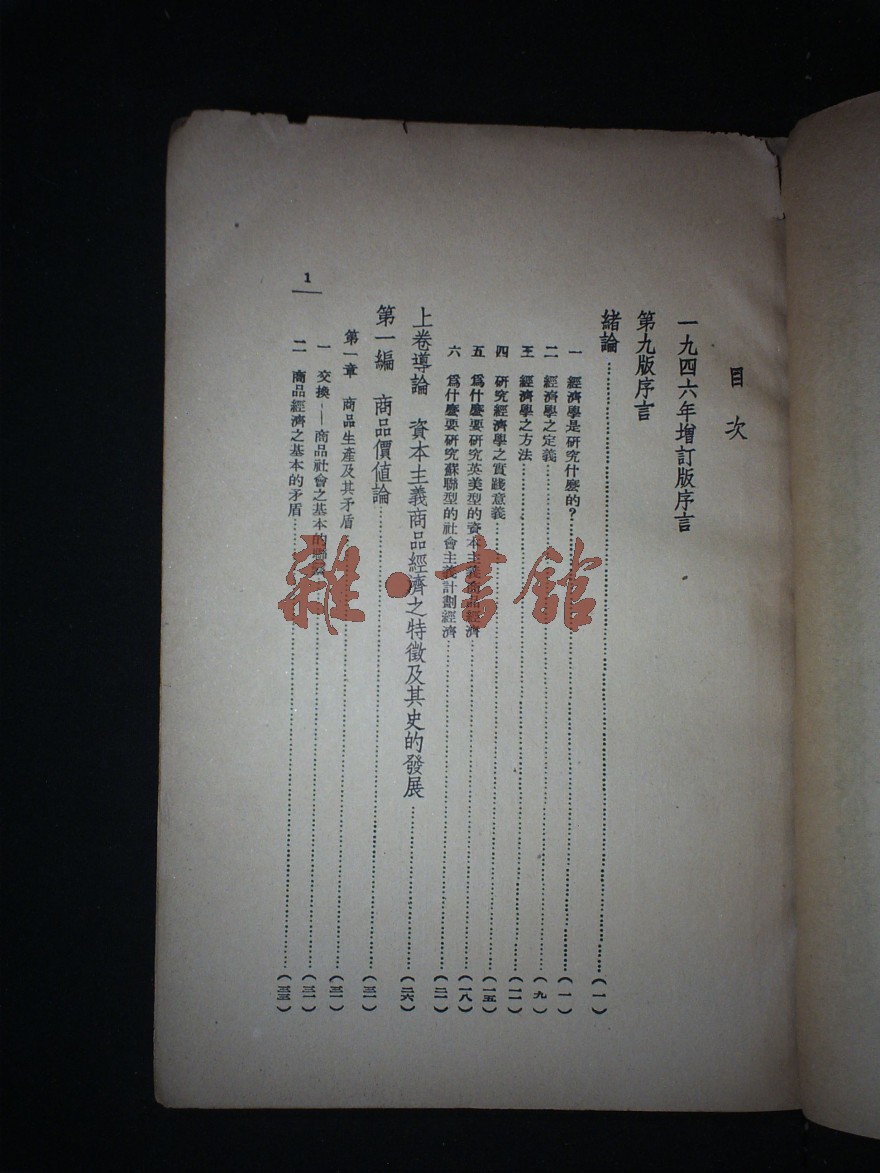 目次
一九四六年增訂版序言
第九版序言
緒論……(一)
一 經濟學是研究什麼的?……(一)
二 經濟學之定義……(九)
三 經濟學之方法……(一一)
四 研究經濟學之實踐意義……(一五)
五 爲什麼要研究英美型的資本主義商品經濟……(一八)
六 爲什麼要研究蘇聯型的社會主義計劃經濟……(二一)
上卷導論 資本主義商品經濟之特徵及其史的發展……(二六)
第一編 商品價值論……(三一)
第一章 商品生產及其矛盾……(三一)
一 交換——商品社會之基本的……(三一)
二 商品經濟之基本的矛盾……(三三)
1
雜·書館